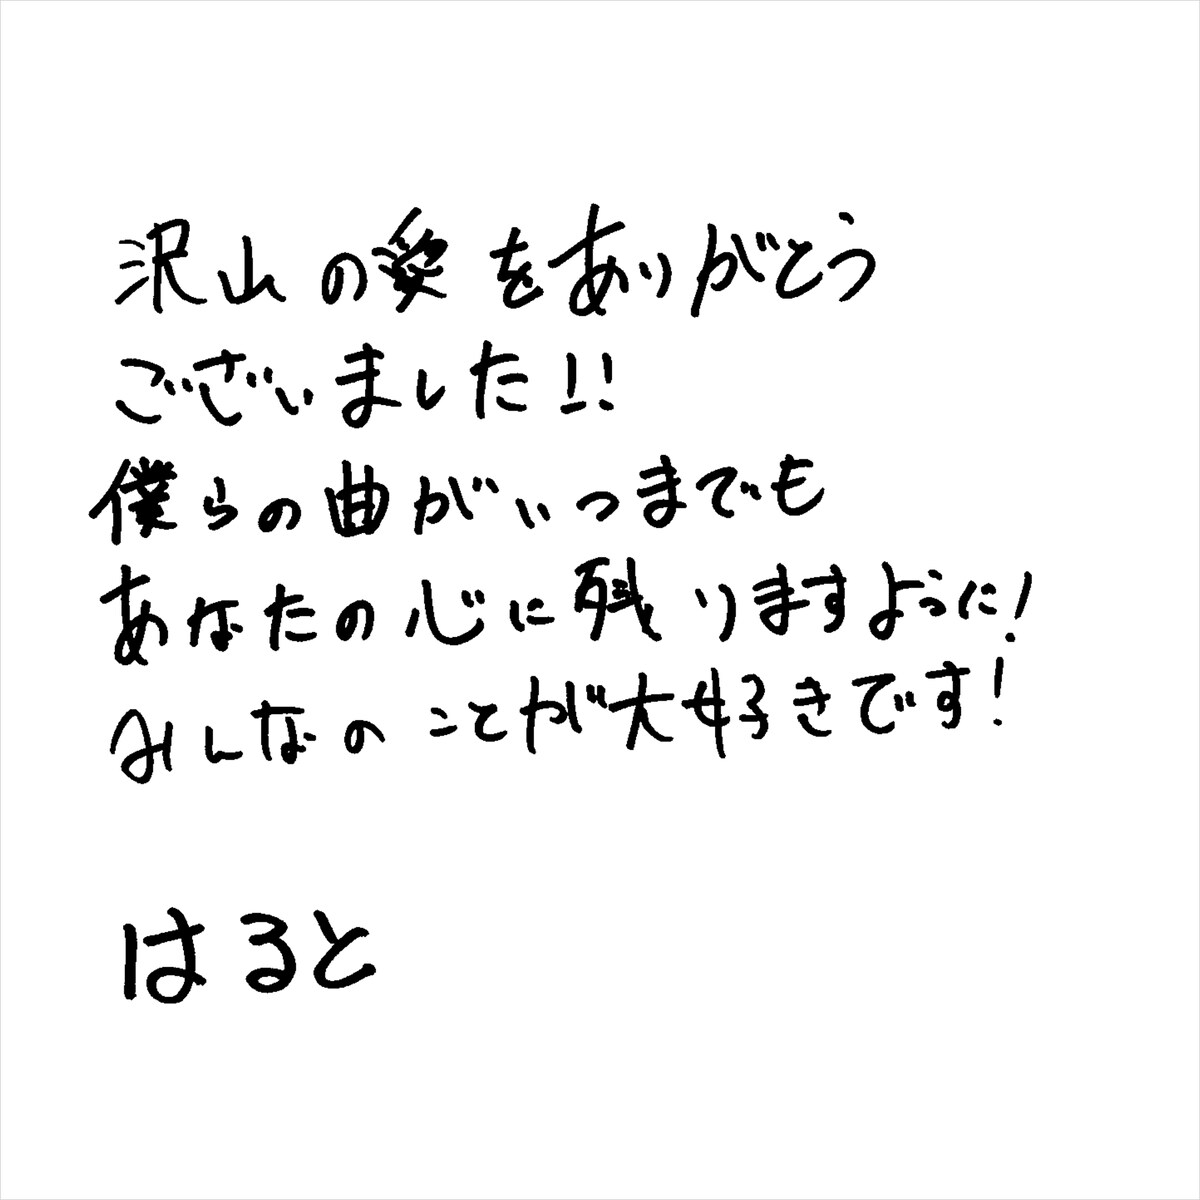 沢山の愛をありがとう
ございました!!
僕らの曲がいつまでも
あなたの心に残りますように!
みんなのことが大好きです!
はると